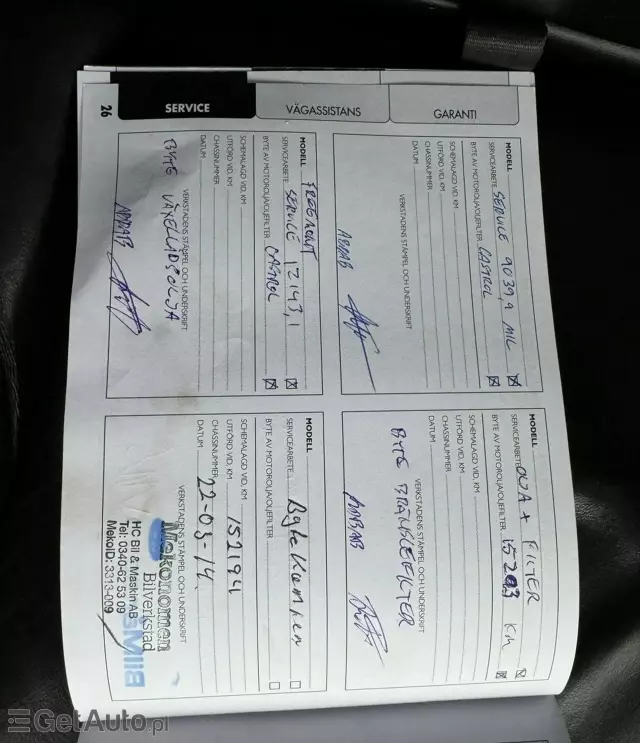 26
SERVICE
VÄGASSISTANS
GARANTI
MODELL
SERVICEARBETE SERVICE 9039,9 MIL
BYTE AV MOTOROLJA/OLJEFILTER CASTROL
SCHEMALAGD VID, KM
UTFÖRD VID, KM
CHASSINUMMER
DATUM
VERKSTADENS STÄMPEL OCH UNDERSKRIFT
MODELL FREEMONT
SERVICEARBETE SERVICE 12143,1
BYTE AV MOTOROLJA/OLJEFILTER CASTROL
SCHEMALAGD VID, KM
UTFÖRD VID, KM
CHASSINUMMER
DATUM
VERKSTADENS STÄMPEL OCH UNDERSKRIFT
BYTE VÄXELLÅDSOLJA
MODELL
SERVICEARBETE OLJA + FILTER
BYTE AV MOTOROLJA/OLJEFILTER Km
SCHEMALAGD VID, KM
UTFÖRD VID, KM
CHASSINUMMER
DATUM
VERKSTADENS STÄMPEL OCH UNDERSKRIFT
BYTE BRÄNSLEFILTER
MODELL
SERVICEARBETE Byte
BYTE AV MOTOROLJA/OLJEFILTER
SCHEMALAGD VID, KM
UTFÖRD VID, KM 152194
CHASSINUMMER
DATUM 22-03-14
VERKSTADENS STÄMPEL OCH UNDERSKRIFT
Mekonomen
Bilverkstad
HC Bil & Maskin AB
Tel: 0340-62 53 09
MekoID: 3313-009
GetAuto.pl